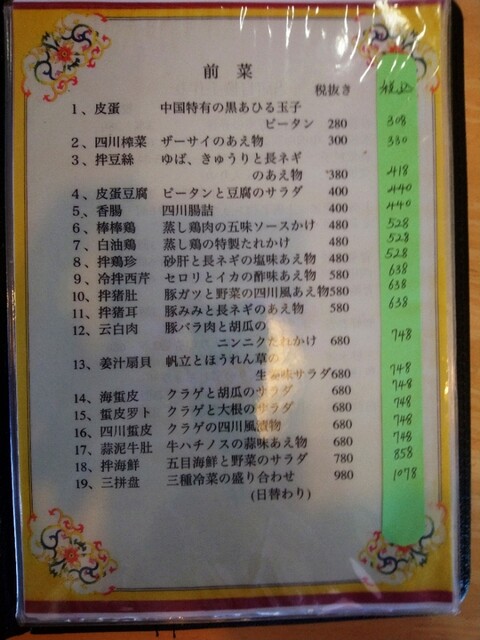 前 菜
税抜き 税込
1、皮蛋 中国特有の黒あひる玉子
ピータン 280 308
2、四川榨菜 ザーサイのあえ物 300 330
3、拌豆絲 ゆば、きゅうりと長ネギ
のあえ物 380 418
4、皮蛋豆腐 ピータンと豆腐のサラダ 400 440
5、香腸 四川腸詰 400 440
6、棒棒鶏 蒸し鶏肉の五味ソースかけ 480 528
7、白油鶏 蒸し鶏の特製たれかけ 480 528
8、拌鶏珍 砂肝と長ネギの塩味あえ物 480 528
9、冷拌西芹 セロリとイカの酢味あえ物 580 638
10、拌猪肚 豚ガツと野菜の四川風あえ物580 638
11、拌猪耳 豚みみと長ネギのあえ物 580 638
12、云白肉 豚バラ肉と胡瓜の
ニンニクたれかけ 680 748
13、姜汁扇貝 帆立とほうれん草の
生姜味サラダ680 748
14、海蜇皮 クラゲと胡瓜のサラダ 680 748
15、蜇皮罗卜 クラゲと大根のサラダ 680 748
16、四川蜇皮 クラゲの四川風漬物 680 748
17、蒜泥牛肚 牛ハチノスの蒜味あえ物 680 748
18、拌海鮮 五目海鮮と野菜のサラダ 780 858
19、三拼盘 三種冷菜の盛り合わせ 980 1078
(日替わり)